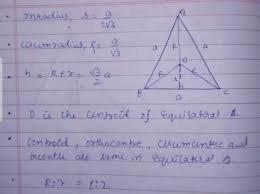 • inradius, r = a/2√3
• circumradius, R = a/√3
• h = R+r = √3/2 a
A
a
a
R
O
R
R
r
B
a
C
• O is the centroid of equilateral Δ.
• Centroid, orthocentre, circumcentre and
incentre are same in equilateral Δ
• R:r =